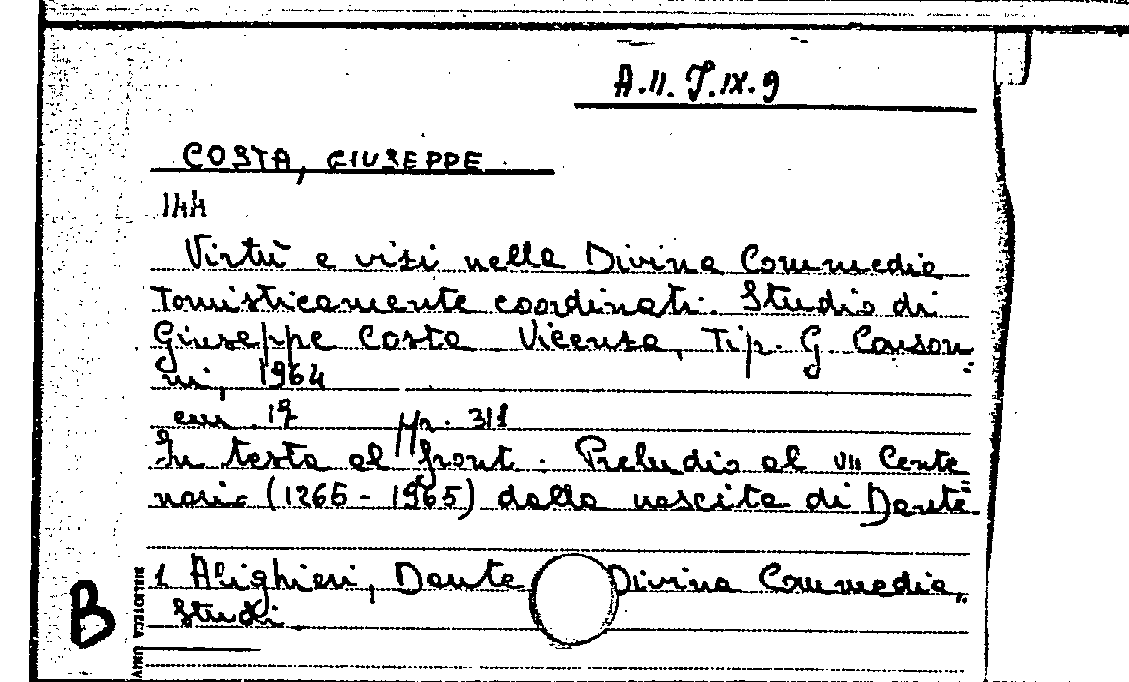 A.II. T.IX.9
COSTA, GIUSEPPE
144
Virtù e vizi nella Divina Commedia
Tomisticamente coordinati. Studio di
Giuseppe Costa Vicenza, Tip. G Conson
ni, 1964
cm. 17 pp. 311
In testa al front. Preludio al VII Cente=
nario (1265-1965) dalla nascita di Dante
1 Alighieri, Dante Divina Commedia,
Studi
B
BIBLIOTECA UNIV